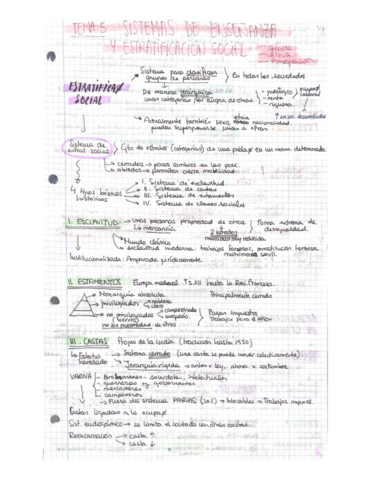 TEMA 5 SISTEMAS DE ENSEÑANZA
Y ESTRATIFICACIÓN SOCIAL
Sistema para clasificar
grupos de personas
En todas las sociedades
ESTRATIFICA°
SOCIAL
De manera jerárquica
unas categorías por encima de otras
prestigio
renta
riqueza
Actualmente también sexo, nacionalidad
pueden superponerse unas a otras
Sistema de
estrat social
Cjto de estratos (categorías) de una pobla° en un mom determinado
cerrados → pocos cambios en las posic.
abiertos → permiten cierta movilidad
4 tipos básicos
históricos
I. Sistema de esclavitud
II. Sistema de castas
III. Sistema de estamentos
IV. Sistema de clases sociales
I. ESCLAVITUD
Unas personas propiedad de otras
la mercancía
Forma extrema de
desigualdad
2 estratos
movilidad muy reducida
Mundo clásico
esclavitud moderna: trabajos forzosos, prostitución forzosa,
matrimonio servil
Institucionalizada: Amparada jurídicamente
II. ESTAMENTOS
Europa medieval
hasta la Rev. Francesa
Monarquía absoluta
Principalmente cerrado
privilegiados
nobleza
clero
no privilegiados
(siervos)
campesinado
burguesía
no los propiedad de otros
Pagan impuestos
Trabajan para el señor
III. CASTAS
Propio de la India (tradición hasta 1950)
Estatus
heredado
Sistema cerrado (una casta se puede mover colectivamente)
Jerarquía rígida → antes x ley, ahora x costumbre
VARNA
Brahmanes → sacerdotes, intelectuales
guerreros y gobernantes
mercaderes
campesinos
Fuera del sistema PARIAS → intocables → Trabajos impuros
Castas ligadas a la ocupa°
Sist. endogámico → se limita el contacto con otras castas
Reencarnación
casta ↑
casta ↓